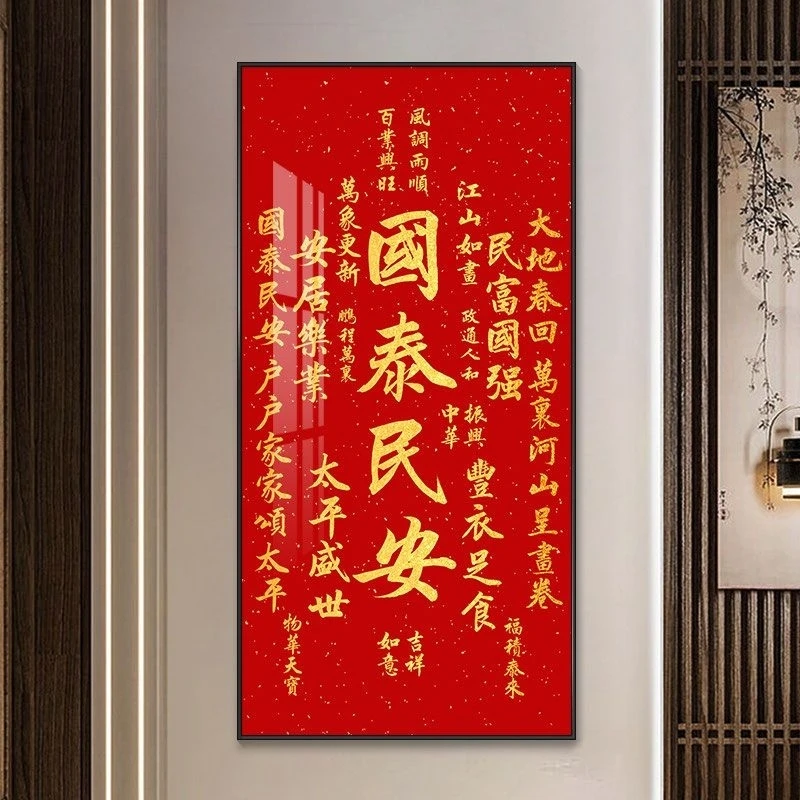 大地春回
萬裏河山呈畫卷
民富國强
江山如畫
政通人和
振興
中華
豐衣足食
福積泰來
風調雨順
百業興旺
國泰民安
吉祥
如意
萬象更新
鵬程萬裏
安居樂業
太平盛世
國泰民安
戶戶家家頌太平
物華天寶